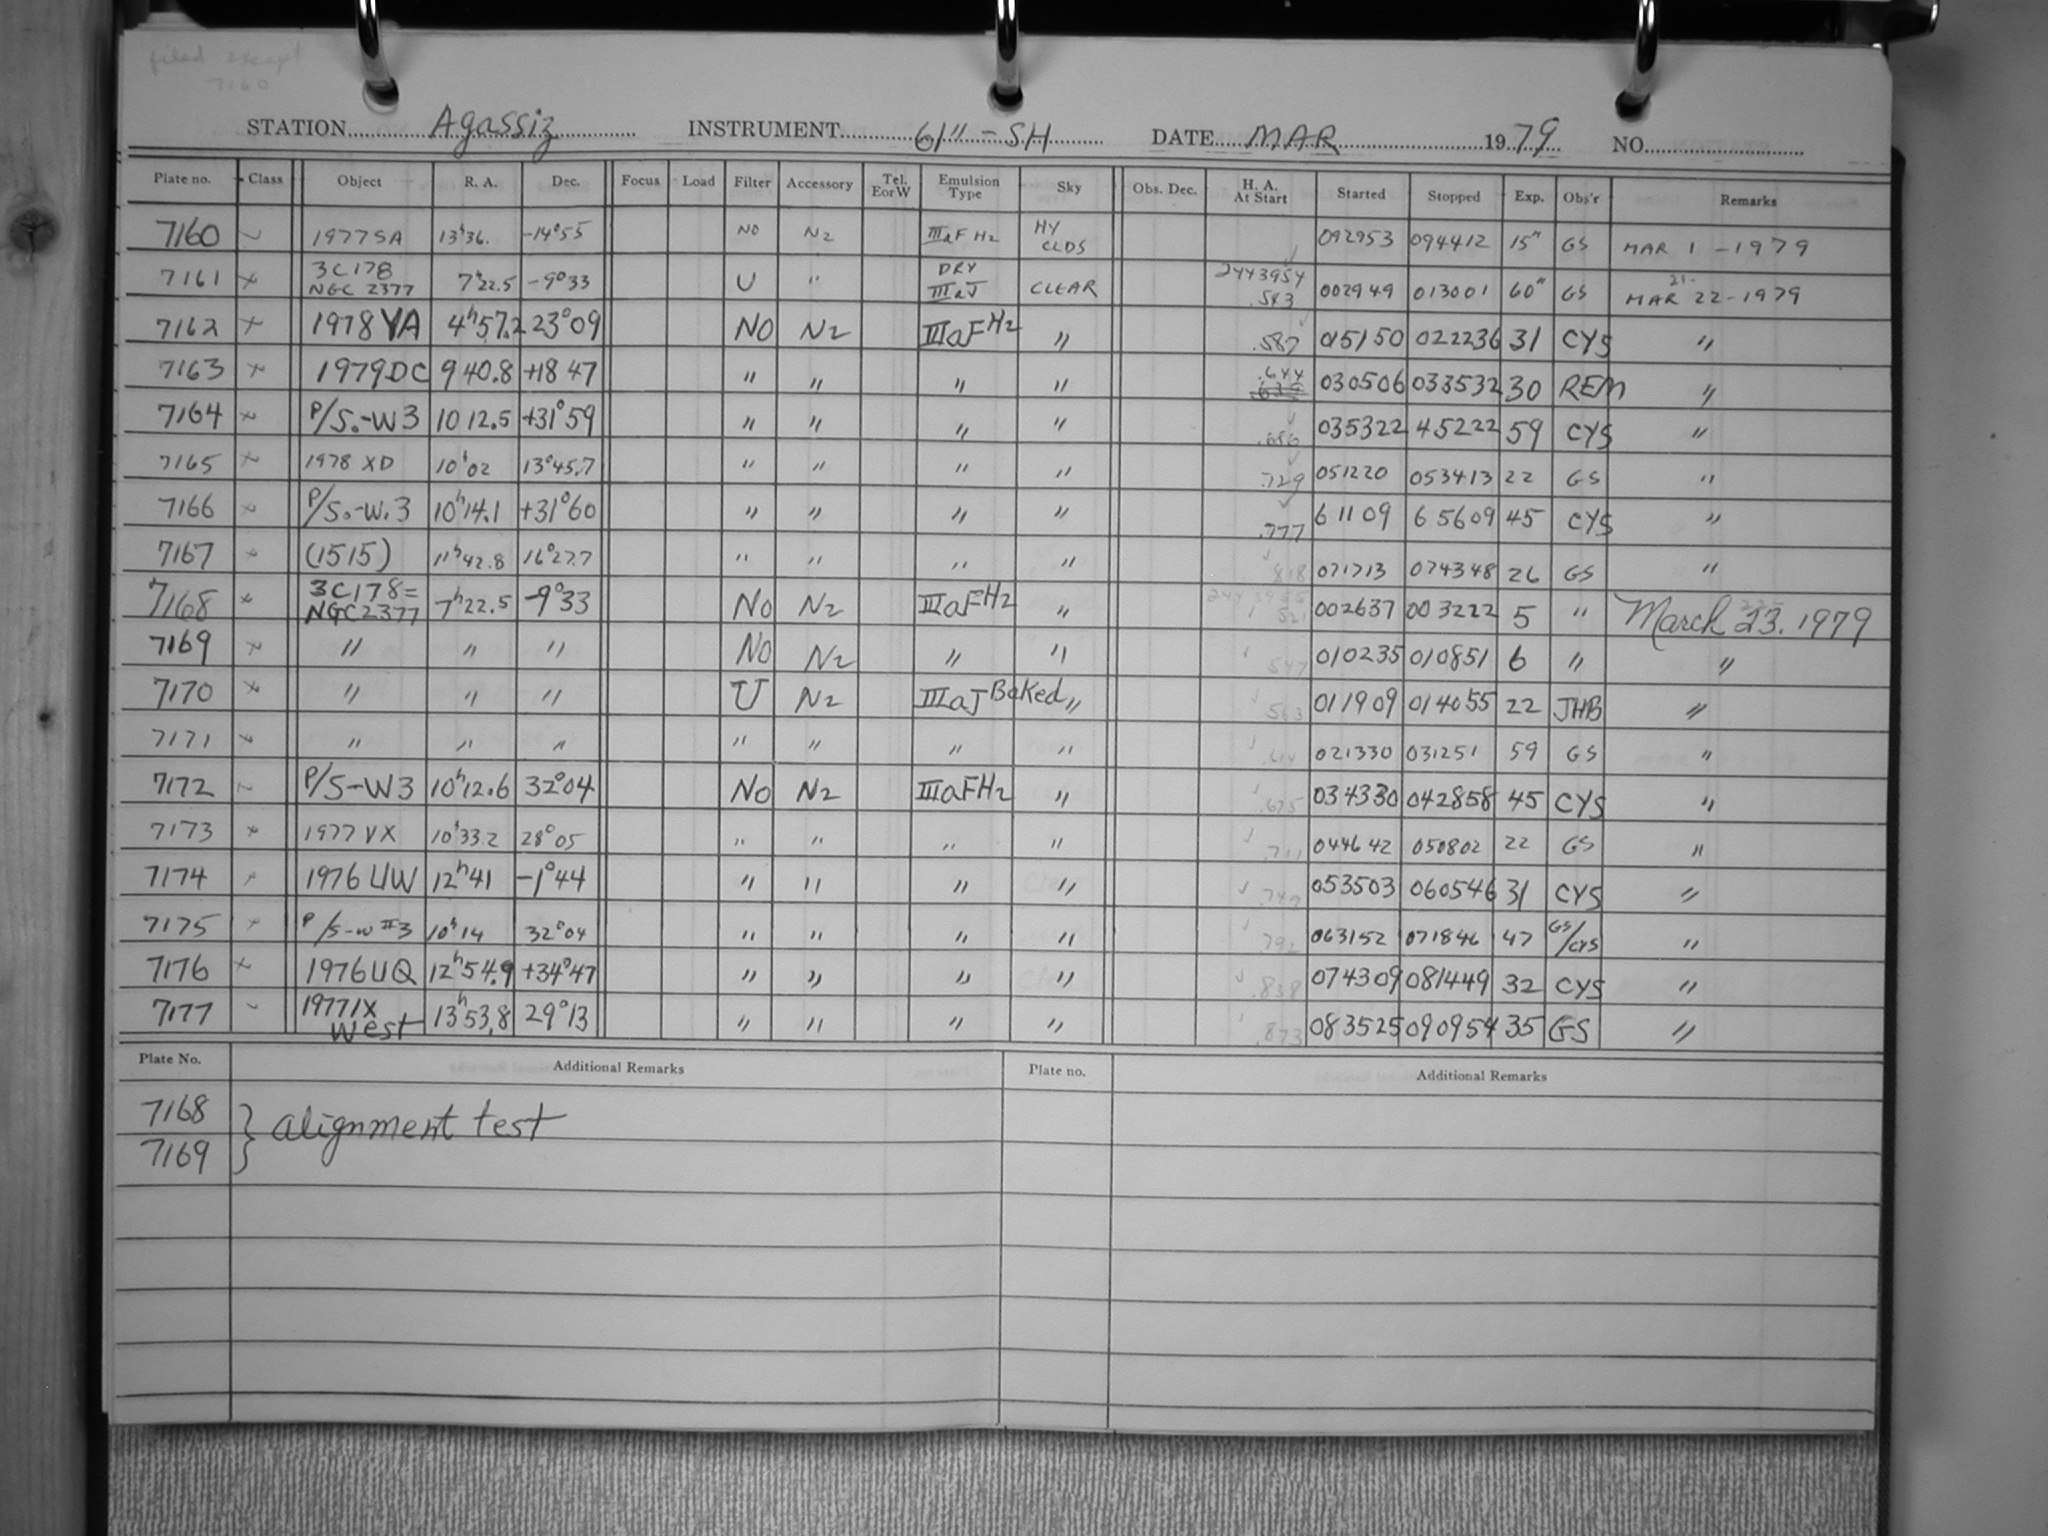 filed except
7160
STATION Agassiz INSTRUMENT 61" - SH DATE MAR 1979 NO.
Plate no. Class Object R. A. Dec. Focus Load Filter Accessory Tel. E or W Emulsion Type Sky Obs. Dec. H. A. At Start Started Stopped Exp. Obs'r Remarks
7160 1977SA 13h36. -14°55 NO N2 IIIaF H2 HY CLDS 092953 094412 15m GS MAR 1 - 1979
7161 x 3C178 NGC 2377 7h22.5 -9°33 U " DRY IIIaJ CLEAR 2443954 .543 002949 013001 60m GS 21- MAR 22 - 1979
7162 x 1978 VA 4h57.2 23°09 NO N2 IIIaF H2 " .587 015150 022236 31 CYS "
7163 x 1979DC 9 40.8 +18 47 " " " " .644 030506 033532 30 REM "
7164 x P/S.-W3 10 12.5 +31°59 " " " " .680 035322 45222 59 CYS "
7165 x 1978 XD 10h02 13°45.7 " " " " .729 051220 053413 22 GS "
7166 x P/S.-W.3 10h14.1 +31°60 " " " " .777 61109 65609 45 CYS "
7167 x (1515) 11h42.8 16°27.7 " " " " .818 071713 074348 26 GS "
7168 x 3C178= NGC2377 7h22.5 -9°33 NO N2 IIIaF H2 " 521 002637 003222 5 " March 23. 1979
7169 x " " " NO N2 " " 547 010235 010851 6 " "
7170 x " " " U N2 IIIaJ Baked " 563 011909 014055 22 JHB "
7171 x " " " " " " " .614 021330 031251 59 GS "
7172 P/S-W3 10h12.6 32°04 NO N2 IIIaF H2 " .675 034330 042858 45 CYS "
7173 x 1977 VX 10h33.2 28°05 " " " " .711 044642 050802 22 GS "
7174 x 1976 UW 12h41 -1°44 " " " " .747 053503 060546 31 CYS "
7175 x P/S-W #3 10h14 32°04 " " " " 792 063152 071846 47 GS/CYS "
7176 x 1976UQ 12h54.9 +34°47 " " " " .838 074309 081449 32 CYS "
7177 1977IX West 13h53.8 29°13 " " " " .873 083525 090954 35 GS "
Plate No. Additional Remarks Plate no. Additional Remarks
7168 } alignment test
7169